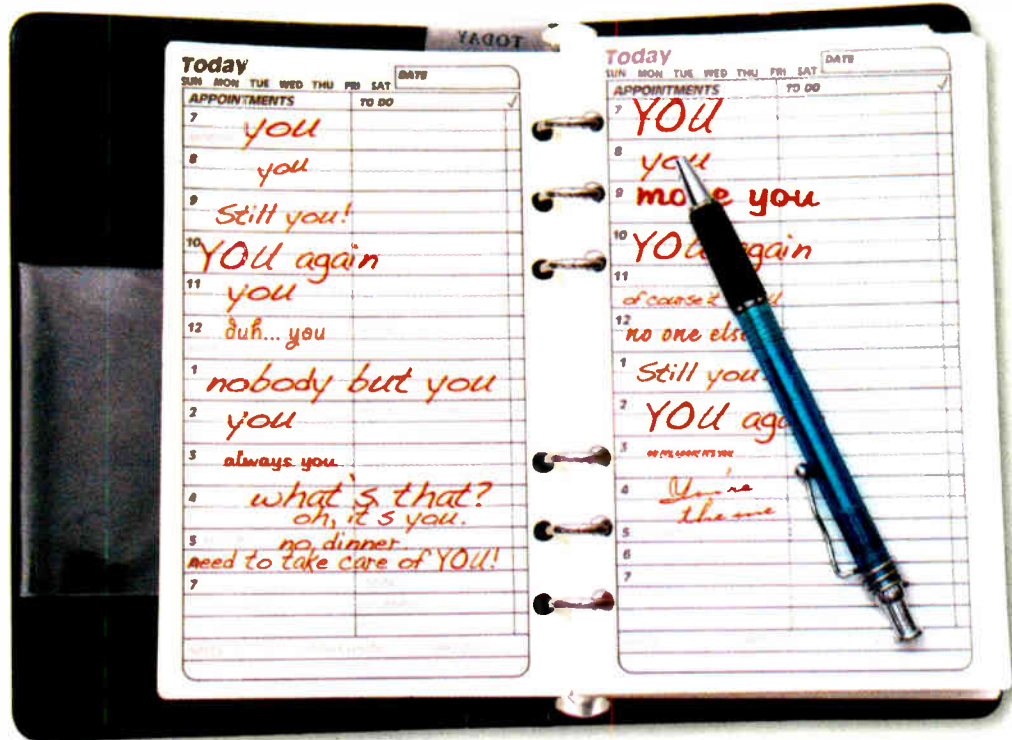 TODAY
Today
SUN MON TUE WED THU FRI SAT
DATE
APPOINTMENTS
TO DO
7
you
8
you
9
Still you!
10
YOU again
11
you
12
duh... you
1
nobody but you
2
you
3
always you
4
what's that?
oh, it's you.
5
no dinner
need to take care of YOU!
7
Today
SUN MON TUE WED THU FRI SAT
DATE
APPOINTMENTS
TO DO
7
YOU
8
you
9
more you
10
YOU again
11
of course it
12
no one else
1
Still you
2
YOU
3
4
You're
the one
5
6
7